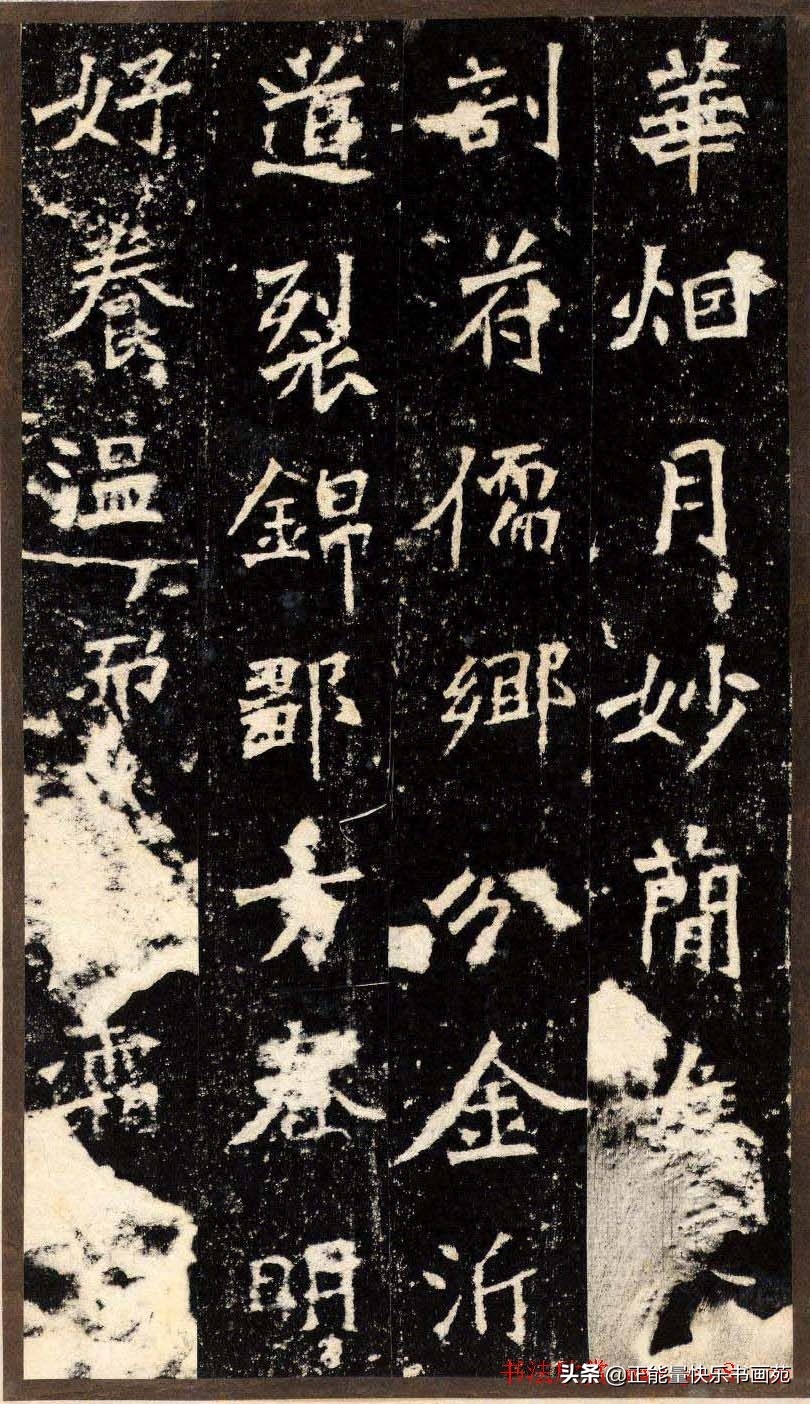 華烟月妙簡
剖符儒鄉分金沂
道裂錦鄒方春明
好養溫而
书法
头条 @正能量快乐书画苑